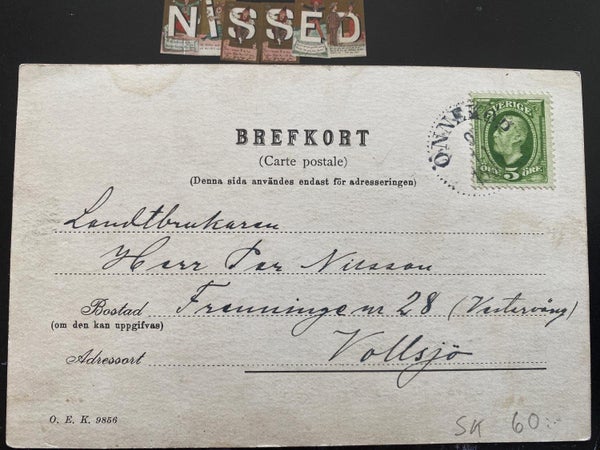 NISSED
BREFKORT
(Carte postale)
(Denna sida användes endast för adresseringen)
SVERIGE
5 ÖRE
ÖNNEKÖP
Landtbrukaren
Herr Per Nilsson
Bostad Frenninge nr 28 (Vestervång)
(om den kan uppgifvas)
Adressort Vollsjö
O. E. K. 9856
SK 60:-